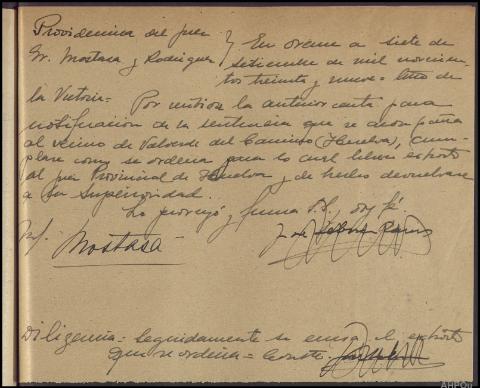 Providencia del juez
Sr. Mostaza y Rodriguez
En Orense a siete de
setiembre de mil novecien
tos treinta y nueve = Año de
la Victoria =
Por recibida la anterior carta para
notificación de la sentencia que se acompaña
al vecino de Valverde del Camino (Huelva), cum-
plase como se ordena para lo cual librese exhorto
al juez Provincial de Huelva y de hecho devuelvase
a la Superioridad.
Lo proveyó y firma S.S. doy fé
Mostaza
Diligencia = Seguidamente se envia el exhorto
que se ordena =
AHPOu